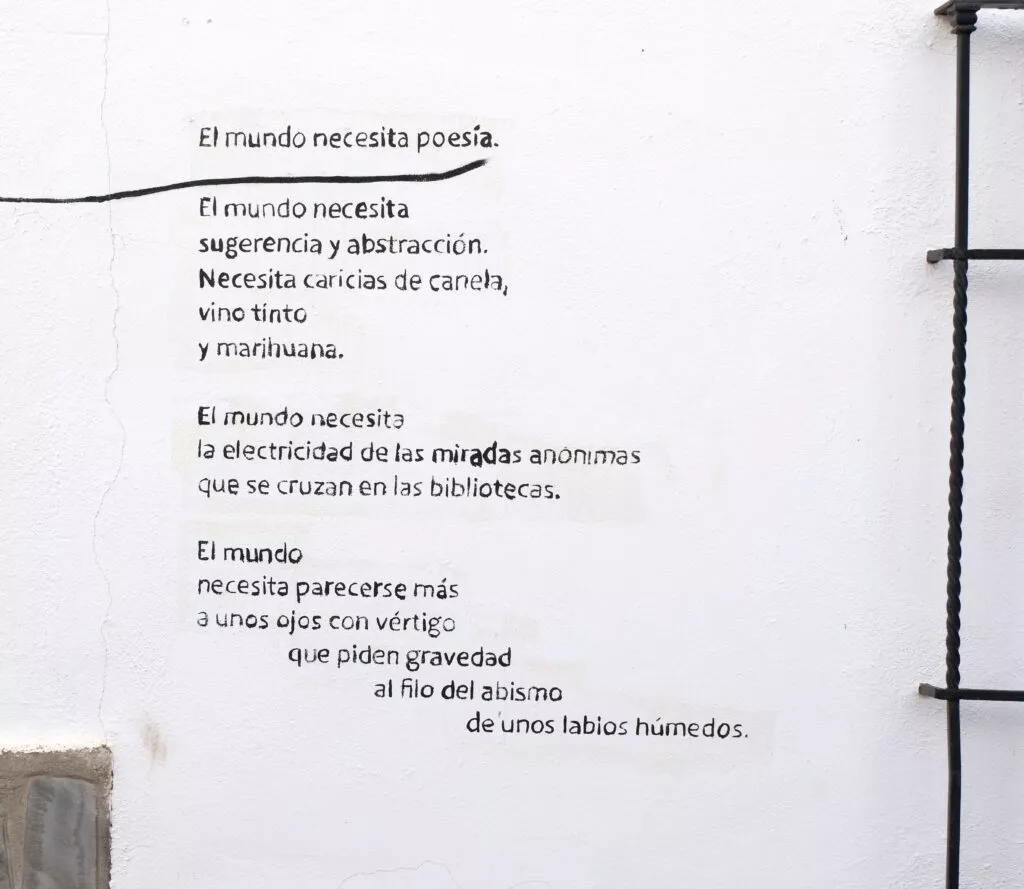 El mundo necesita poesía.
El mundo necesita
sugerencia y abstracción.
Necesita caricias de canela,
vino tinto
y marihuana.
El mundo necesita
la electricidad de las miradas anónimas
que se cruzan en las bibliotecas.
El mundo
necesita parecerse más
a unos ojos con vértigo
que piden gravedad
al filo del abismo
de unos labios húmedos.